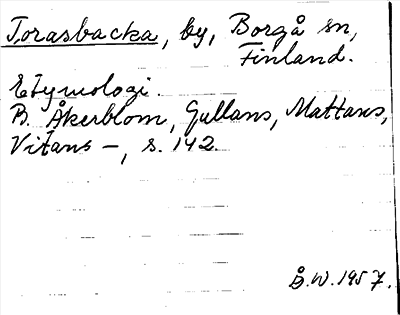 Torasbacka, by, Borgå sn,
Finland.
Etymologi.
B. Åkerblom, Gullans, Mattans,
Vitans –, s. 142.
B.W. 1957.